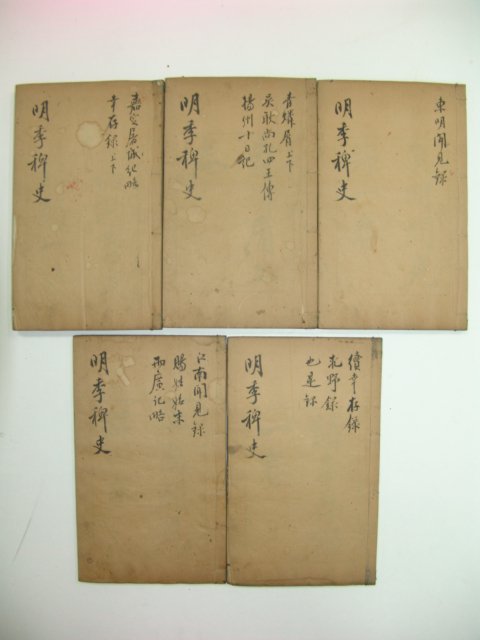 明季稗史
嘉定屠城紀略
幸存錄 上下
明季稗史
青燐屑 上下
吳耿尚孔四王傳
揚州十日記
明季稗史
東明聞見錄
明季稗史
江南聞見錄
賜姓始末
兩廣記略
明季稗史
續幸存錄
求野錄
也是錄